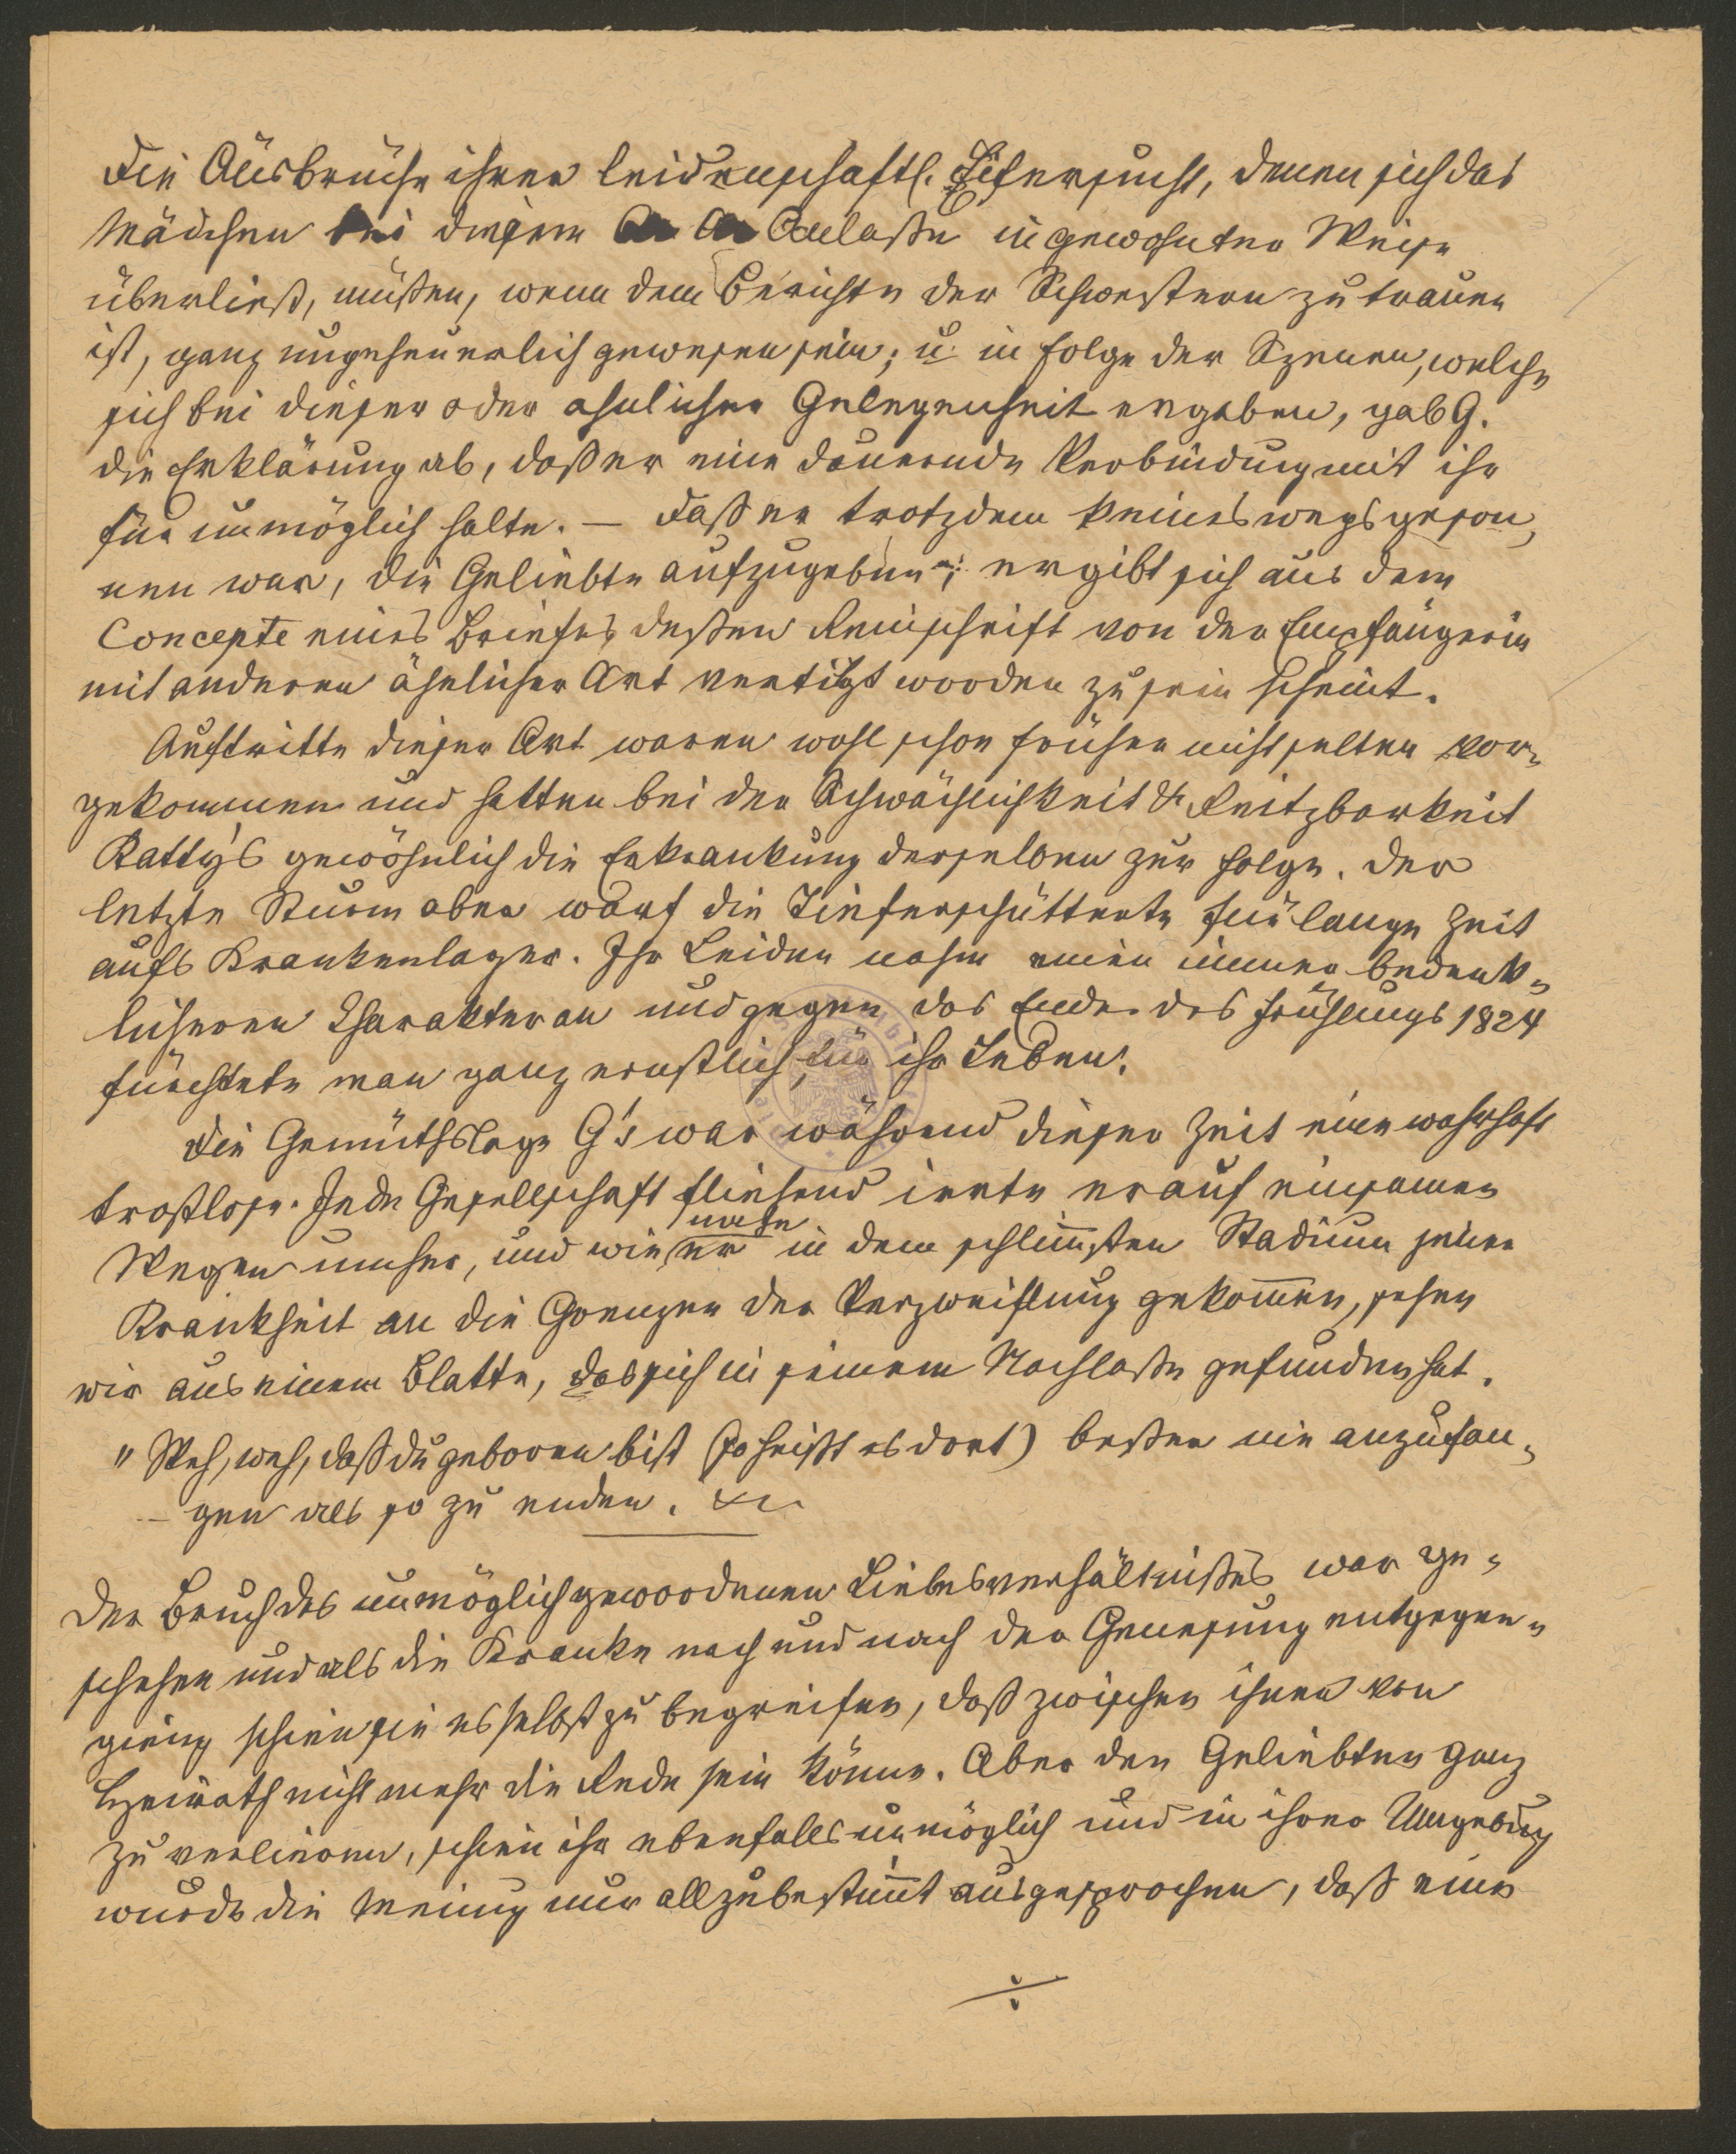 Die Ausbrüche ihrer leidenschaftl. Eifersucht, denen sich das
Mädchen bei diesem Anlaße in gewohnter Weise
überließ, müßen, wenn dem Berichte der Schwestern zu trauen
ist, ganz ungeheuerlich gewesen sein; u. in Folge der Szenen, welche
sich bei dieser oder ähnlicher Gelegenheit ergaben, gab G.
die Erklärung ab, daß er eine dauernde Verbindung mit ihr
für unmöglich halte. — Daß er trotzdem keineswegs geson„
nen war, die Geliebte aufzugeben; ergibt sich aus dem
Concepte eines Briefes, deßen Reinschrift von der Empfängerin
mit anderen ähnlicher Art vertilgt worden zu sein scheint.
Auftritte dieser Art waren wohl schon früher nicht selten vor„
gekommen und hatten bei der Schwächlichkeit & Reitzbarkeit
Katty's gewöhnlich die Erkrankung derselben zur Folge. Der
letzte Sturm aber warf die Tieferschütterte für lange Zeit
aufs Krankenlager. Ihr Leiden nahm einen immer bedenk„
licheren Charakter an und gegen das Ende des Frühlings 1824
fürchtete man ganz ernstlich für ihr Leben.
Die Gemüthslage G's war während dieser Zeit eine wahrhaft
trostlose. Jede Gesellschaft fliehend irrte er auf einsamen
Wegen umher, und wie nahe er in dem schlimmsten Stadium jener
Krankheit an die Grenzen der Verzweiflung gekommen, sehen
wir aus einem Blatte, das sich in seinem Nachlaße gefunden hat.
„Weh, weh, daß du geboren bist (so heißt es dort) beßer nie anzufan„
gen als so zu enden. &c.
Der Bruch des unmöglich gewordenen Liebesverhältnißes war ge„
schehen und als die Kranke nach und nach der Genesung entgegen„
gieng schien sie es selbst zu begreifen, daß zwischen ihnen von
Heirath nicht mehr die Rede sein könne. Aber den Geliebten ganz
zu verlieren, schien ihr ebenfalls unmöglich und in ihrer Umgebung
wurde die Meinung nur allzubestimmt ausgesprochen, daß eine